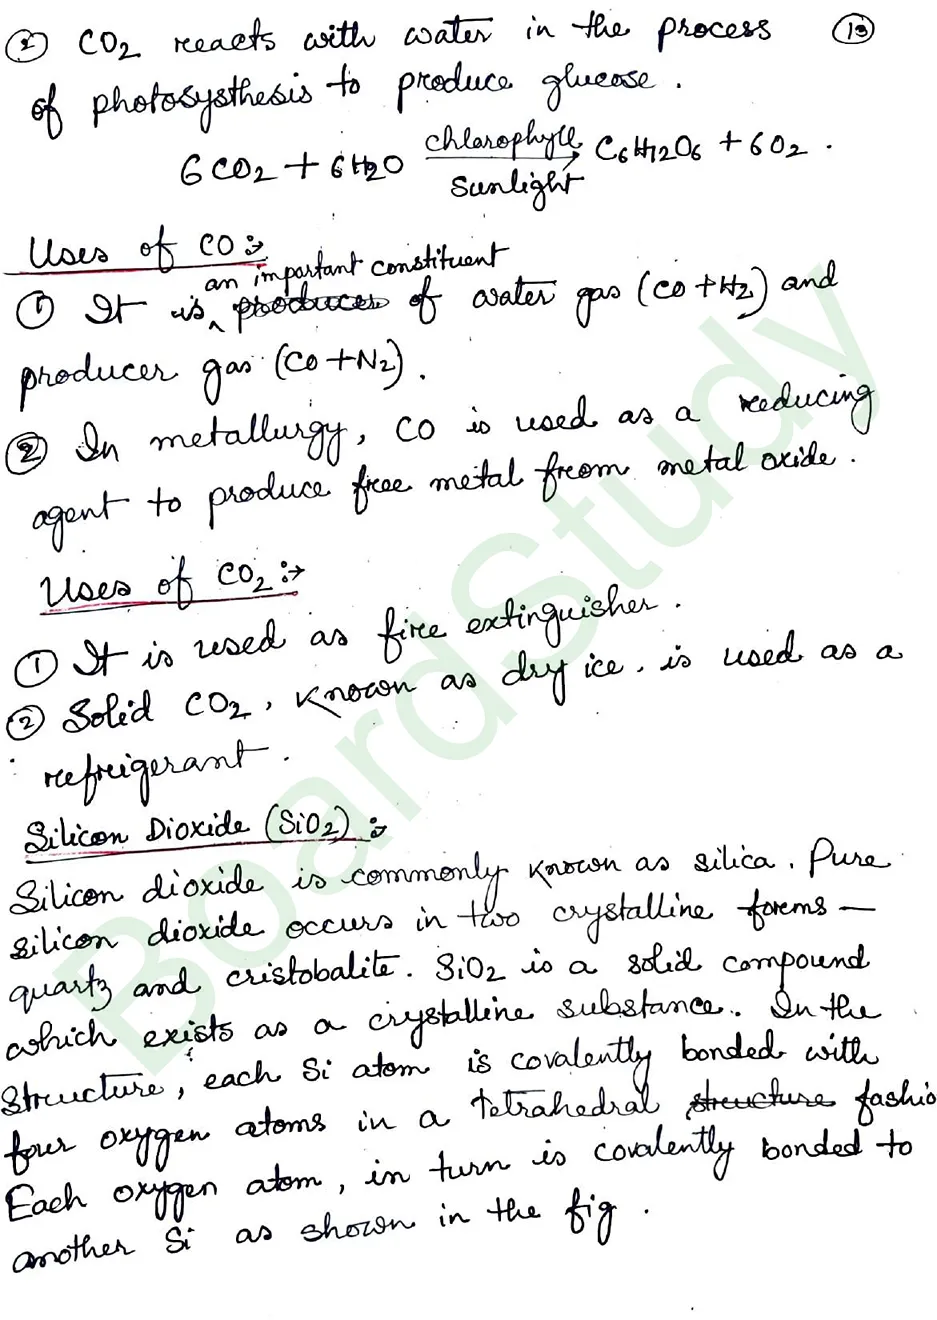 ② CO2 reacts with water in the process ⑬
of photosysthesis to produce glucose.
6CO2 + 6H2O chlorophyll Sunlight → C6H12O6 + 6O2.
Uses of CO :→
an important constituent
① It is produces of water gas (CO+H2) and
producer gas (CO+N2).
② In metallurgy, CO is used as a reducing
agent to produce free metal from metal oxide.
Uses of CO2 :→
① It is used as fire extinguisher.
② Solid CO2, known as dry ice. is used as a
refrigerant.
Silicon Dioxide (SiO2) :→
Silicon dioxide is commonly known as silica. Pure
silicon dioxide occurs in two crystalline forms —
quartz and cristobalite. SiO2 is a solid compound
which exists as a crystalline substance. In the
structure, each Si atom is covalently bonded with
four oxygen atoms in a tetrahedral structure fashio
Each oxygen atom, in turn is covalently bonded to
another Si as shown in the fig.
BoardStudy